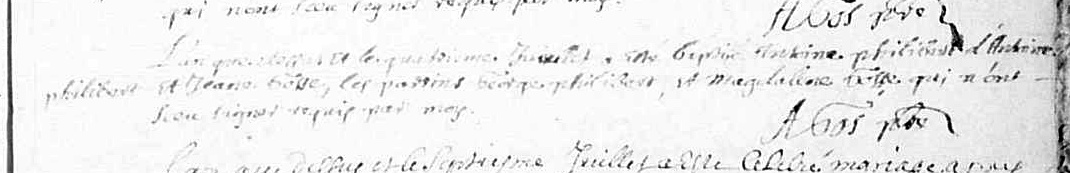 qui n'ont sceu signer requis par moy.
A Gos pbre
L'an que dessus et le quatriesme Juillet a esté baptisé Antoine philibert d'Antoine
philibert et Jeane Gosse, les parrins George philibert, et Magdaleine Gosse qui n'ont
sceu signer requis par moy.
A Gos pbre
L'an que dessus et le septiesme Juillet a esté celebré mariage apres